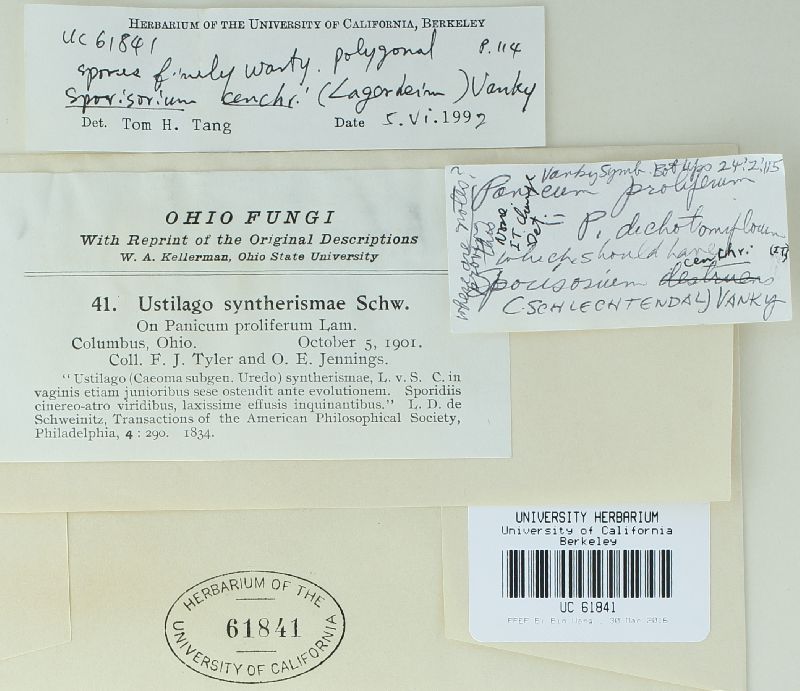 HERBARIUM OF THE UNIVERSITY OF CALIFORNIA, BERKELEY
UC 61841 P. 114
spores finely warty. polygonal
Sporisorium cenchri (Lagerheim) Vanky
Det. Tom H. Tang Date 5.Vi.1992
Vanky Symb. Bot Ups 24:2:115
Panicum proliferum
= P. dichotomiflorum
which should have
cenchri (ITT)
Sporisorium destruens
(SCHLECHTENDAL) VANKY
OHIO FUNGI
With Reprint of the Original Descriptions
W. A. Kellerman, Ohio State University
41. Ustilago syntherismae Schw.
On Panicum proliferum Lam.
Columbus, Ohio. October 5, 1901.
Coll. F. J. Tyler and O. E. Jennings.
"Ustilago (Caeoma subgen. Uredo) syntherismae, L. v. S. C. in
vaginis etiam junioribus sese ostendit ante evolutionem. Sporidiis
cinereo-atro viridibus, laxissime effusis inquinantibus." L. D. de
Schweinitz, Transactions of the American Philosophical Society,
Philadelphia, 4 : 290. 1834.
UNIVERSITY HERBARIUM
University of California
Berkeley
UC 61841
HERBARIUM OF THE
61841
UNIVERSITY OF CALIFORNIA